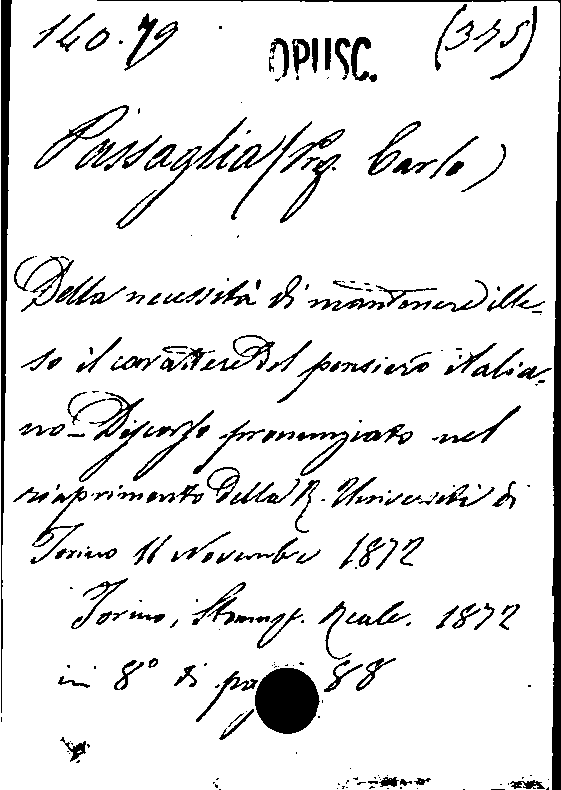 140.79 OPUSC. (375)
Passaglia (Prof. Carlo)
Della necessità di mantenere ille-
so il carattere del pensiero italia-
no - Discorso pronunziato nel
riaprimento della R. Università di
Torino 11 Novembre 1872
Torino, Stamp. Reale. 1872
in 8° di pag. 88